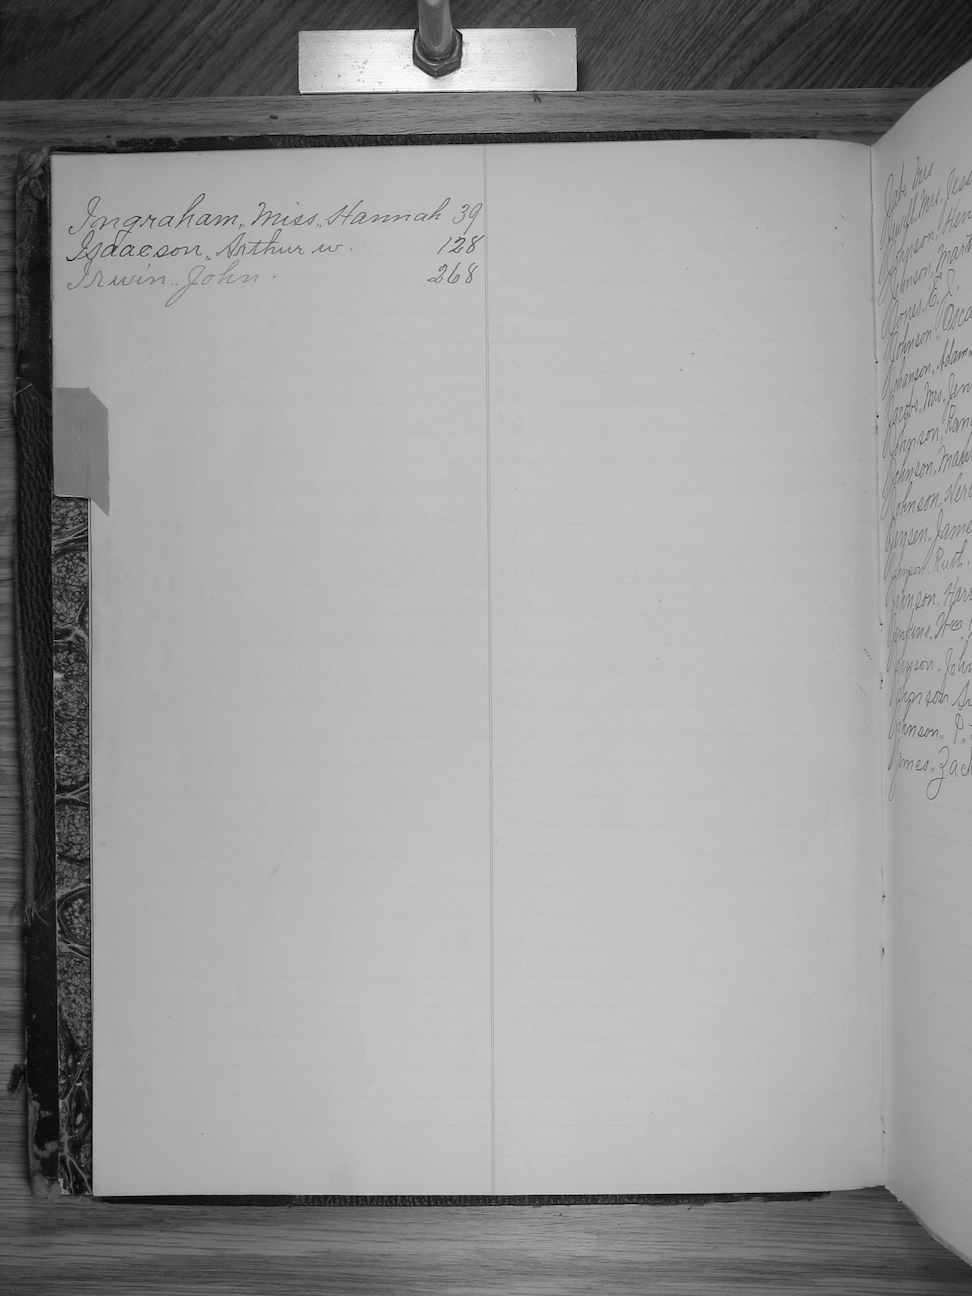 Ingraham,, Miss,, Hannah 39
Isaacson,, Arthur w. 128
Irwin,, John. 268
Mrs
Mrs. Jess
Johnson, Hen
Johnson, Mart
Jones, E. J.
Johnson, Osca
Johanson, Adam
Jacobs, Mrs. Jen
Johnson, Ran
Johnson,
Johnson,
Jensen, Jame
Ruth.
Johnson, Harr
Jenkins, Wm.
John
Johnson
Johnson,, P.
James,, Zach